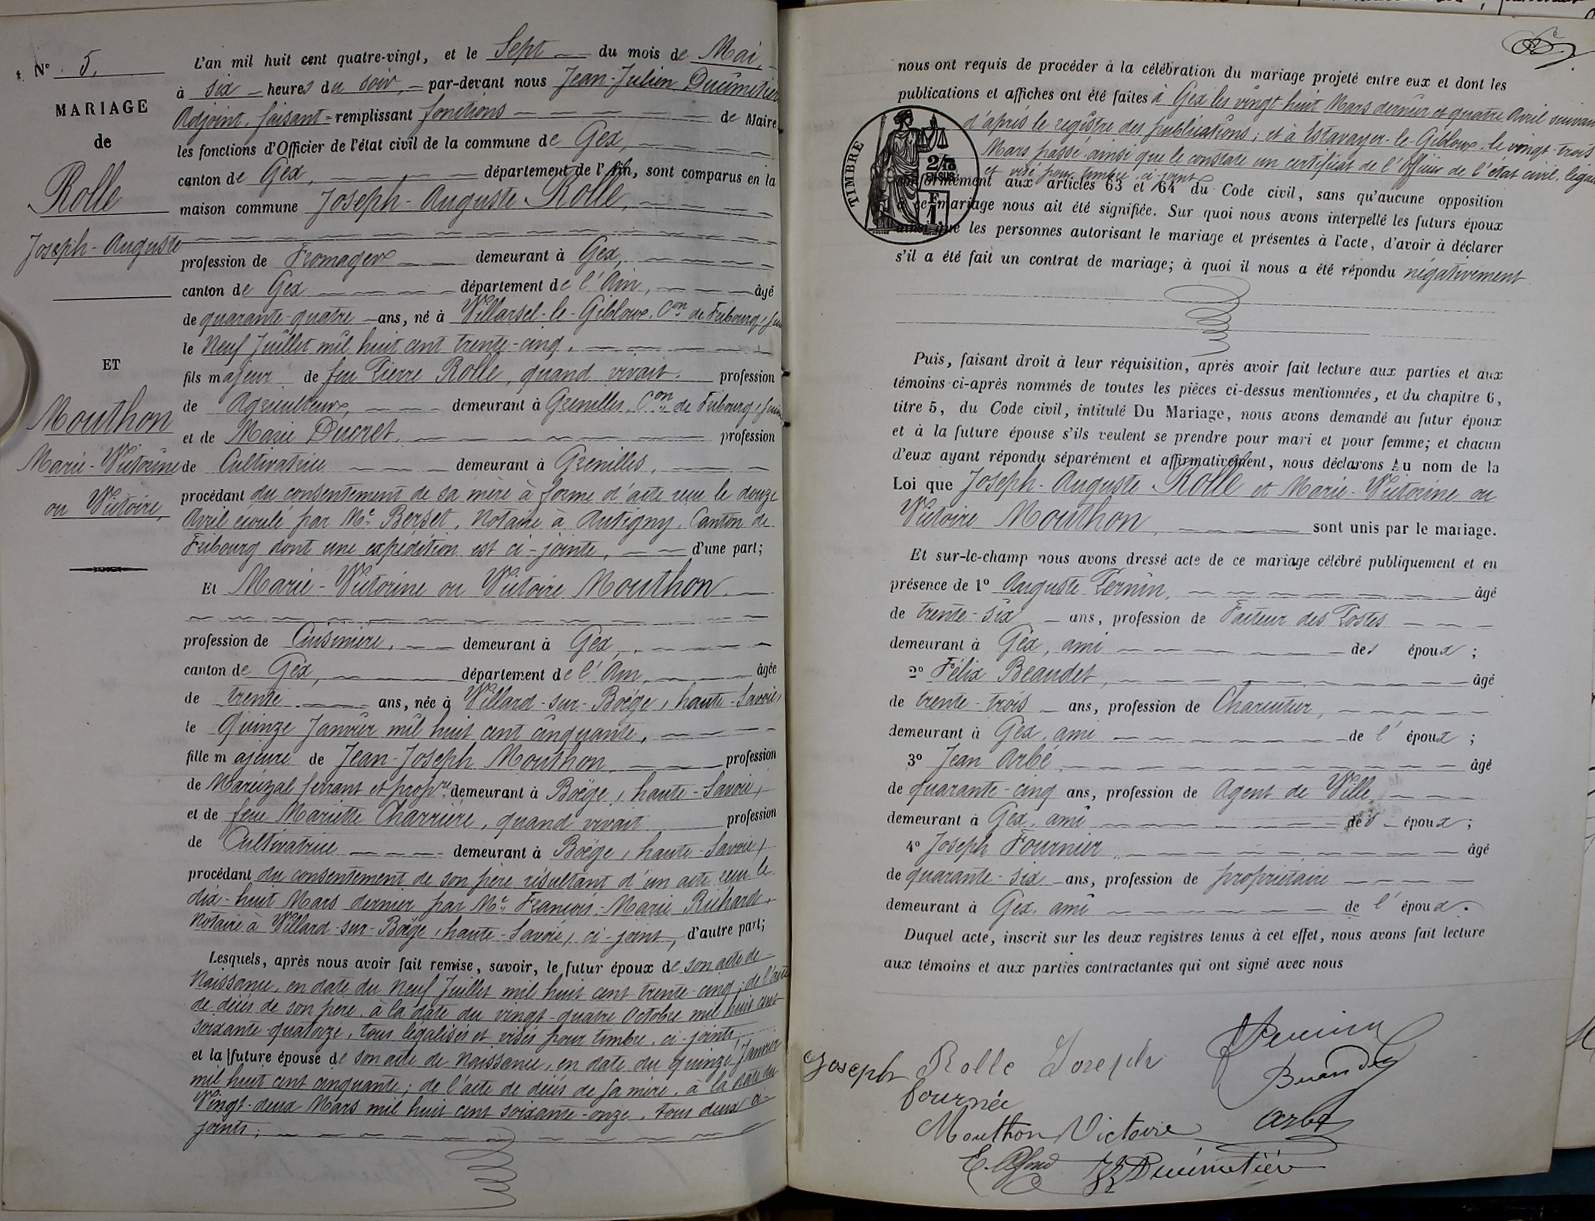 N° 5.
MARIAGE
de
Rolle
Joseph-Auguste
ET
Mouthon
Marie-Victorine
ou Victoire,
L'an mil huit cent quatre-vingt, et le Sept du mois de Mai,
à six heures du soir, par-devant nous Jean-Julien Ducimetière
Adjoint, faisant remplissant fonctions de Maire,
les fonctions d'Officier de l'état civil de la commune de Gex,
canton de Gex, département de l'Ain, sont comparus en la
maison commune Joseph-Auguste Rolle,
profession de Fromager demeurant à Gex,
canton de Gex département de l'Ain, âgé
de quarante-quatre ans, né à Villarsel-le-Gibloux, Con de Fribourg, Suisse
le Neuf Juillet mil huit cent trente-cinq,
fils majeur de feu Pierre Rolle, quand vivait profession
de Agriculteur, demeurant à Grenilles, Con de Fribourg, Suisse
et de Marie Ducret, profession
de Cultivatrice demeurant à Grenilles,
procédant du consentement de sa mère à forme d'acte reçu le douze
Avril écoulé par Me Berset, Notaire à Autigny, Canton de
Fribourg dont une expédition est ci-jointe, d'une part;
Et Marie-Victorine ou Victoire Mouthon,
profession de Cuisinière, demeurant à Gex,
canton de Gex, département de l'Ain, âgée
de trente ans, née à Villard-sur-Boëge, haute-Savoie,
le quinze Janvier mil huit cent cinquante,
fille majeure de Jean-Joseph Mouthon profession
de Maréchal ferrant et propre demeurant à Boëge, haute-Savoie,
et de feue Mariette Charrière, quand vivait profession
de Cultivatrice demeurant à Boëge, haute-Savoie,
procédant du consentement de son père résultant d'un acte reçu le
dix-huit Mars dernier par Me François-Marie Richard,
Notaire à Villard-sur-Boëge, haute-Savoie, ci-joint, d'autre part;
Lesquels, après nous avoir fait remise, savoir, le futur époux de son acte de
Naissance, en date du Neuf Juillet mil huit cent trente-cinq; de l'acte
de décès de son père, à la date du vingt-quatre Octobre mil huit cent
soixante-quatorze, tous légalisés et visés pour timbre, ci-joints,
et la future épouse de son acte de Naissance, en date du quinze Janvier
mil huit cent cinquante; de l'acte de décès de sa mère, à la date du
Vingt-deux Mars mil huit cent soixante-onze, tous deux ci-
joints;
nous ont requis de procéder à la célébration du mariage projeté entre eux et dont les
publications et affiches ont été faites à Gex les vingt huit Mars dernier et quatre Avril suivant
d'après le registre des publications; et à Estavayer-le-Gibloux le vingt-trois
Mars passé ainsi que le constate un certificat de l'Officier de l'état civil, légalisé
et visé pour timbre, ci-joint
TIMBRE
conformément aux articles 63 et 64 du Code civil, sans qu'aucune opposition
à ce mariage nous ait été signifiée. Sur quoi nous avons interpellé les futurs époux
ainsi que les personnes autorisant le mariage et présentes à l'acte, d'avoir à déclarer
s'il a été fait un contrat de mariage; à quoi il nous a été répondu négativement
Puis, faisant droit à leur réquisition, après avoir fait lecture aux parties et aux
témoins ci-après nommés de toutes les pièces ci-dessus mentionnées, et du chapitre 6,
titre 5, du Code civil, intitulé Du Mariage, nous avons demandé au futur époux
et à la future épouse s'ils veulent se prendre pour mari et pour femme; et chacun
d'eux ayant répondu séparément et affirmativement, nous déclarons Au nom de la
Loi que Joseph-Auguste Rolle et Marie-Victorine ou
Victoire Mouthon, sont unis par le mariage.
Et sur-le-champ nous avons dressé acte de ce mariage célébré publiquement et en
présence de 1° Auguste Pernin, âgé
de trente-six ans, profession de Facteur des Postes
demeurant à Gex, ami des époux;
2° Félix Beaudet, âgé
de trente-trois ans, profession de Charcutier,
demeurant à Gex, ami de l'époux;
3° Jean Arbé, âgé
de quarante-cinq ans, profession de Agent de Ville,
demeurant à Gex, ami des époux;
4° Joseph Fournier, âgé
de quarante-six ans, profession de propriétaire
demeurant à Gex, ami de l'époux.
Duquel acte, inscrit sur les deux registres tenus à cet effet, nous avons fait lecture
aux témoins et aux parties contractantes qui ont signé avec nous
Joseph Rolle Joseph
fournée
Mouthon Victoire Arbé
Ducimetière